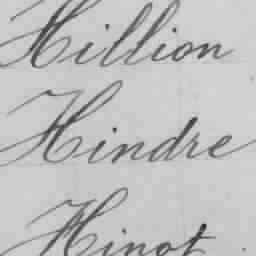 Hillion
Hindre
Hinot.